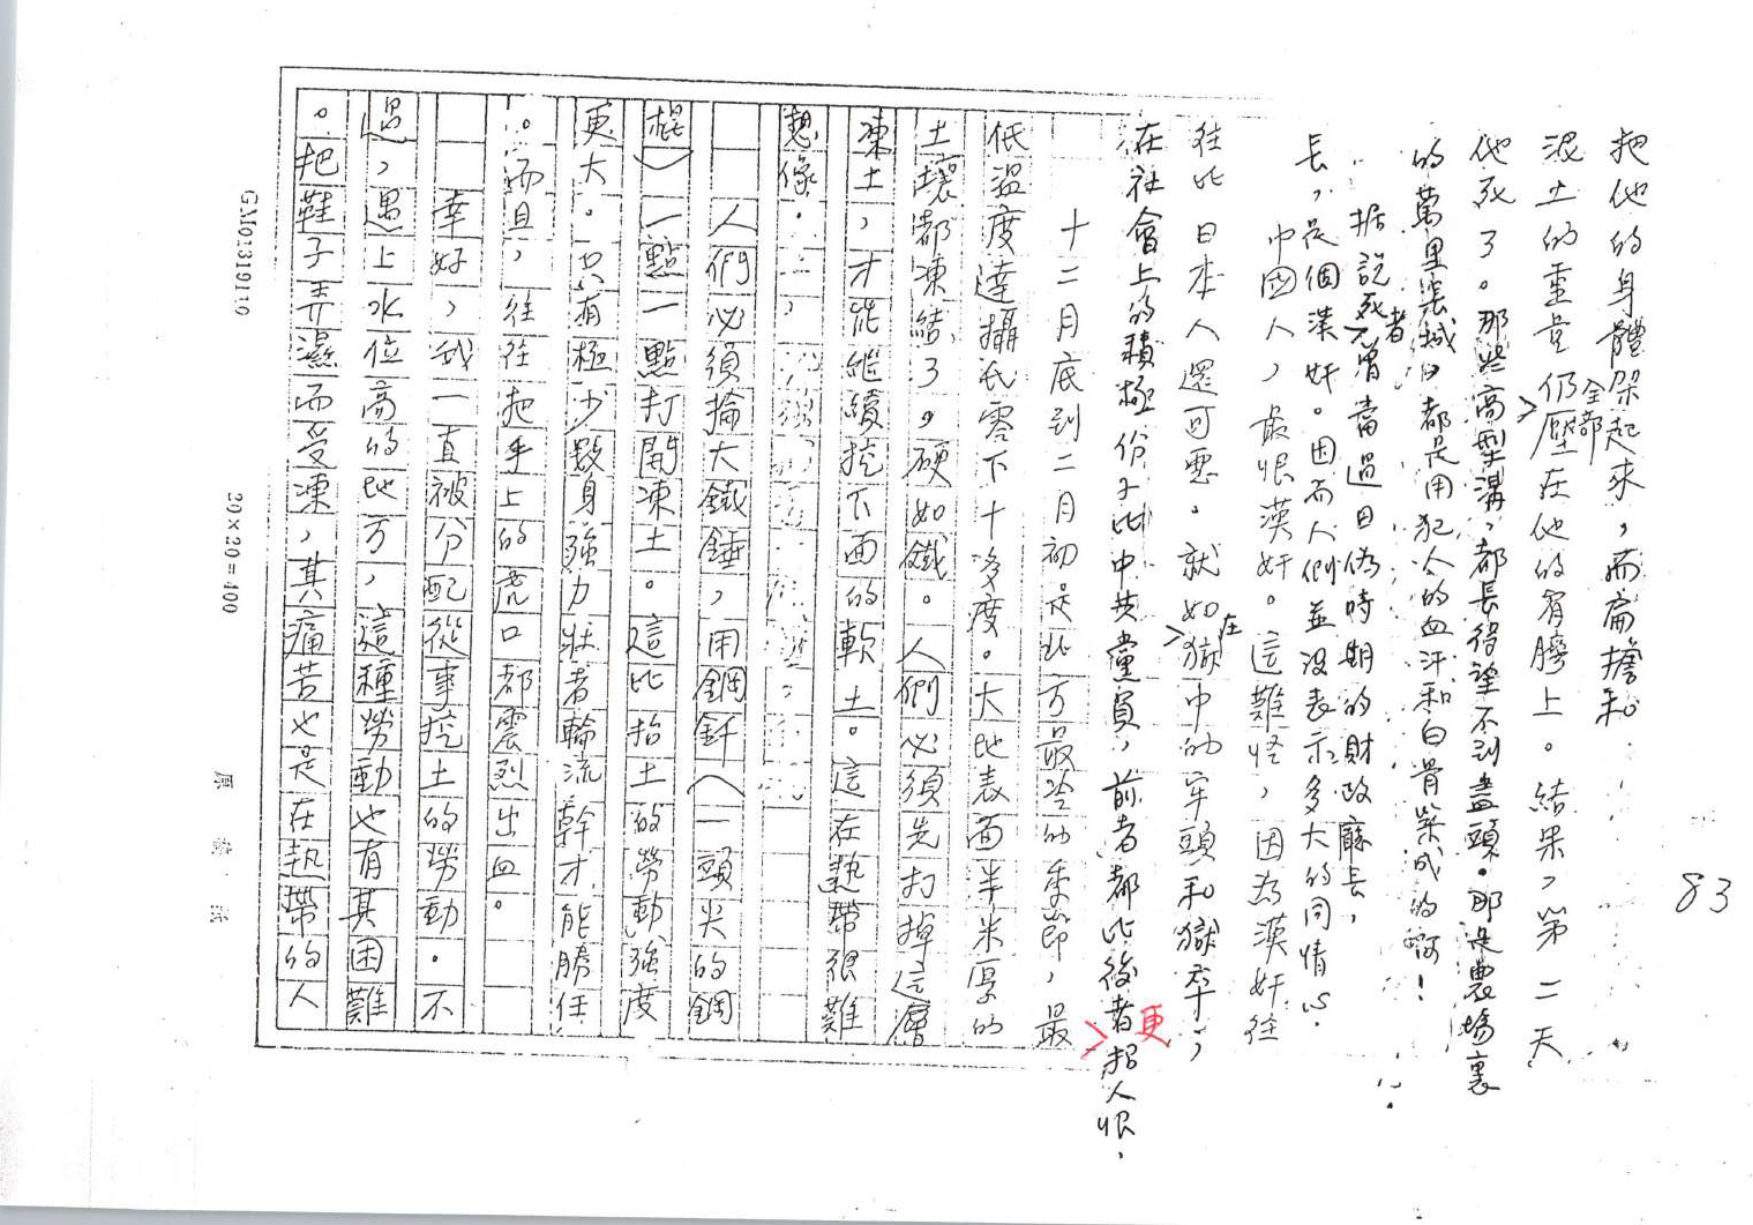 83
把他的身體架起來，而扁擔和
泥土的重量仍全部壓在他的肩膀上。結果，第二天
他死了。那些高型溝，都長得望不到盡頭。那是農場裏
的萬里長城，都是用犯人的血汗和白骨築成的啊！
据說死者曾當過日偽時期的財政廳長，
長，是個漢奸。因而人們並沒表示多大的同情心。
中國人，最恨漢奸。這難怪，因為漢奸往
往比日本人還可惡。就如在獄中的牢頭和獄卒，
在社會上的積極份子比中共黨員，前者都比後者更招人恨。
十二月底到二月初是北方最冷的季節，最
低溫度達攝氏零下十多度。大地表面半米厚的
土壤都凍結了，硬如鐵。人們必須先打掉這層
凍土，才能繼續挖下面的軟土。這在熱帶很難
想像。
人們必須掄大鐵錘，用鋼釬（一頭尖的鋼
棍）一點一點打開凍土。這比抬土的勞動強度
更大。只有極少數身強力壯者輪流幹才能勝任
。而且，往往把手上的虎口都震烈出血。
幸好，我一直被分配從事挖土的勞動。不
過，遇上水位高的地方，這種勞動也有其困難
。把鞋子弄濕而受凍，其痛苦也是在熱帶的人
GM0131910
20×20=400